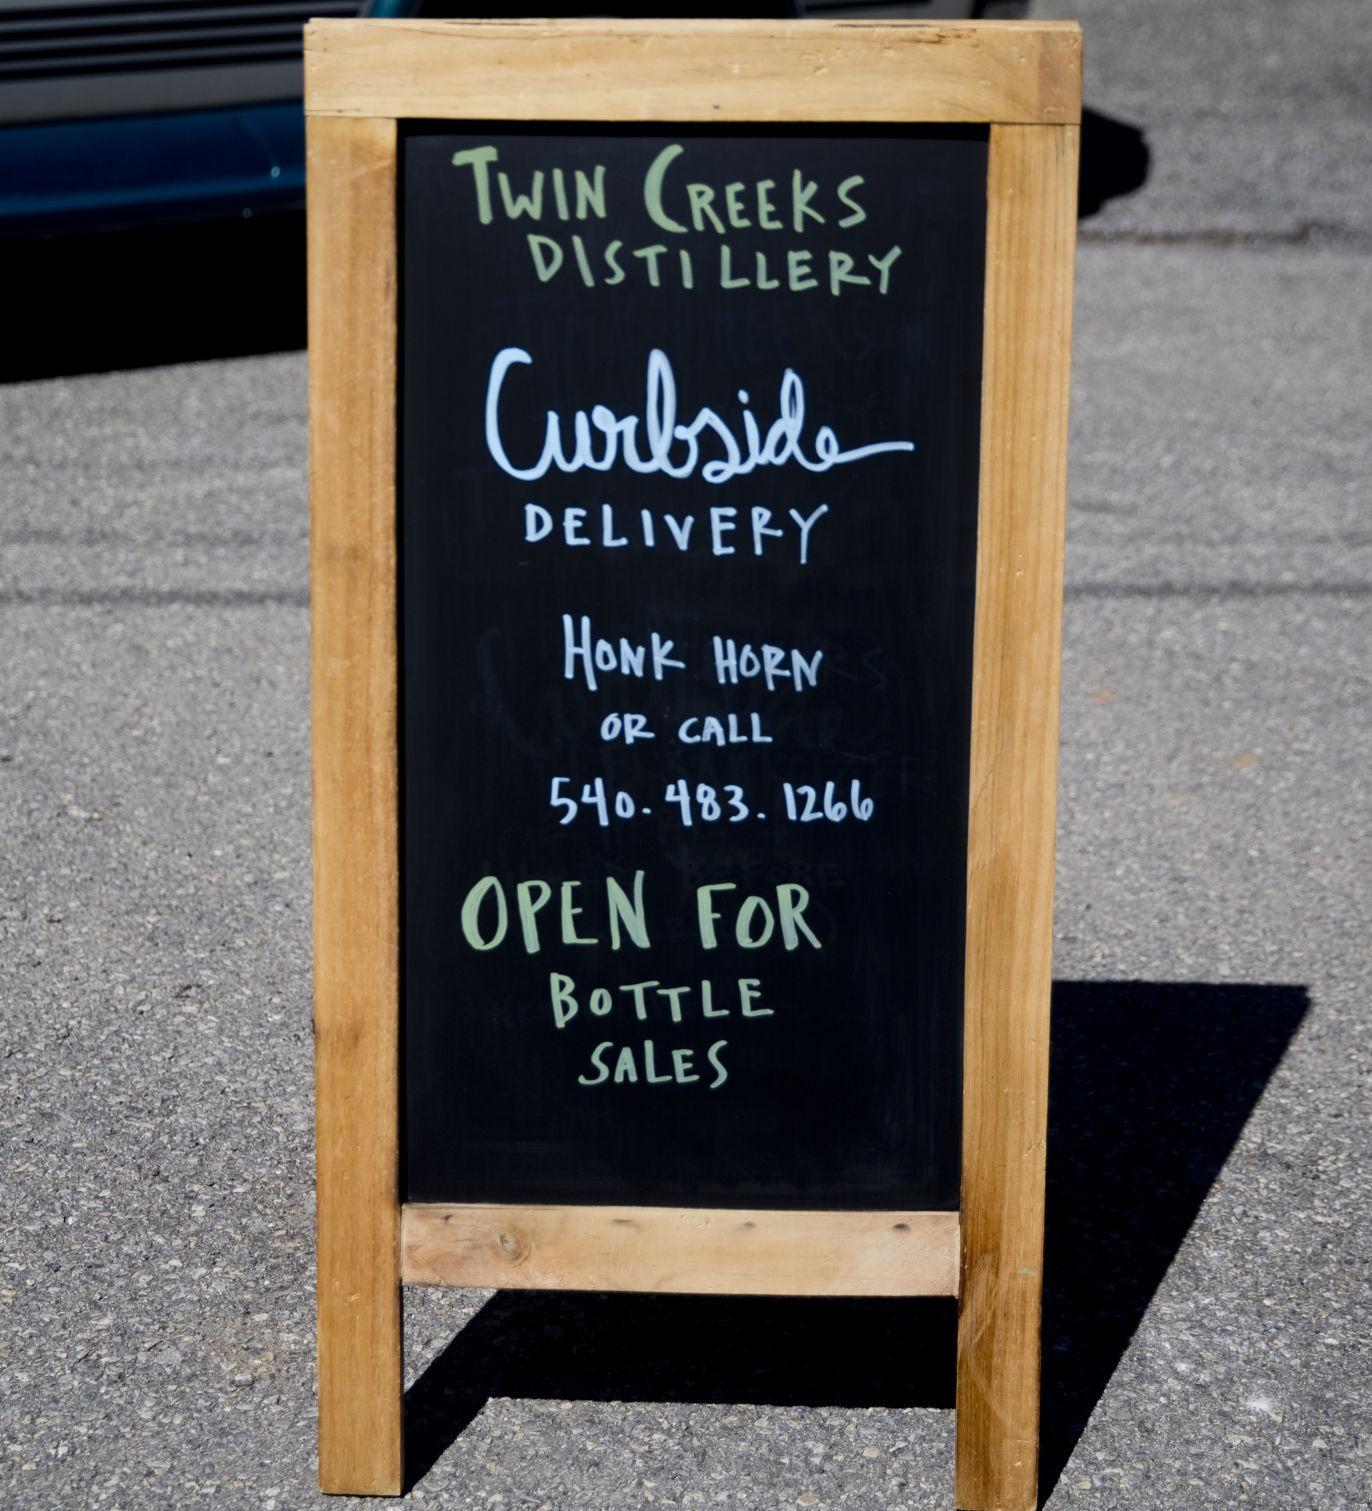 TWIN CREEKS
DISTILLERY
Curbside
DELIVERY
HONK HORN
OR CALL
540.483.1266
OPEN FOR
BOTTLE
SALES